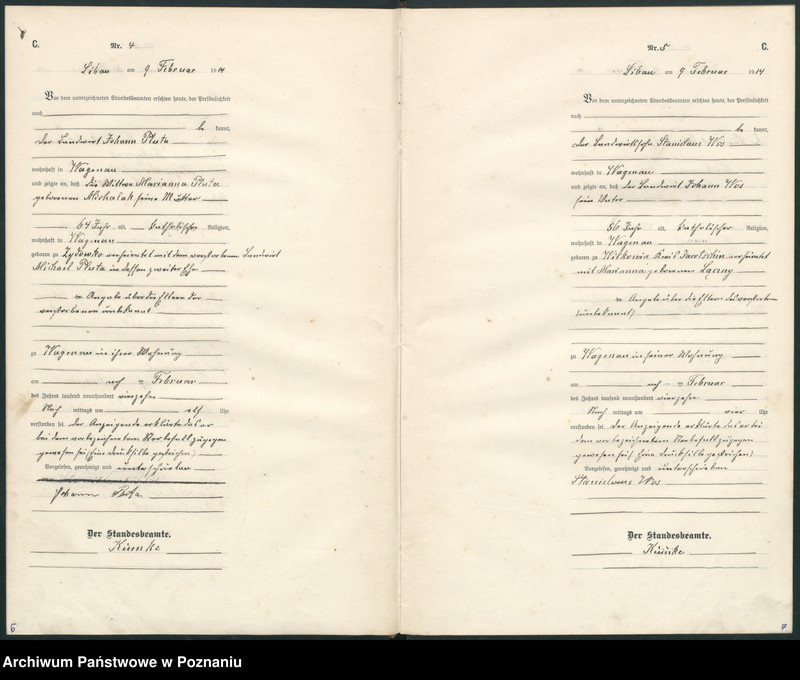 C.
Nr. 4
Libau am 9. Februar 1914
Vor dem unterzeichneten Standesbeamten erschien heute, der Persönlichkeit
nach
be kannt,
der Landwirt Johann Pluta
wohnhaft in Wagenau
und zeigte an, daß die Witwe Marianna Pluta
geborenen Michalak seine Mutter
64 Jahr alt, katholischer Religion,
wohnhaft in Wagenau
geboren zu Zydowko verheiratet mit dem verstorbenen Landwirt
Michael Pluta in dessen zweiter Ehe
Angabe über die Eltern der
verstorbenen unbekannt
zu Wagenau in ihrer Wohnung
am Februar
des Jahres tausend neunhundert vierzehn
Nach mittags um elf Uhr
verstorben sei. Der Anzeigende erklärte das er
bei dem vorbezeichneten Sterbefall zugegen
gewesen sei (Eine Druksilbe gestrichen)
Vorgelesen, genehmigt und unterschrieben
Johann Pluta
Der Standesbeamte.
6
Nr. 5
C.
Libau am 9 Februar 1914
Vor dem unterzeichneten Standesbeamten erschien heute, der Persönlichkeit
nach
be kannt,
der Stanislaus Wos
wohnhaft in Wagenau
und zeigte an, daß der Landwirt Johann Wos
sein Vater
56 Jahr alt, katholischer Religion,
wohnhaft in Wagenau
geboren zu Witkowia Kreis Jarotschin verheiratet
mit Marianna geborenen
Angabe über die Eltern des verstorbenen
(unbekannt)
zu Wagenau in seiner Wohnung
am Februar
des Jahres tausend neunhundert vierzehn
Nach mittags um vier Uhr
verstorben sei. Der Anzeigende erklärte das er bei
dem vorbezeichneten Sterbefall zugegen
gewesen sei (Eine Druksilbe gestrichen)
Vorgelesen, genehmigt und unterschrieben
Stanislaus Wos
Der Standesbeamte.
7
Archiwum Państwowe w Poznaniu